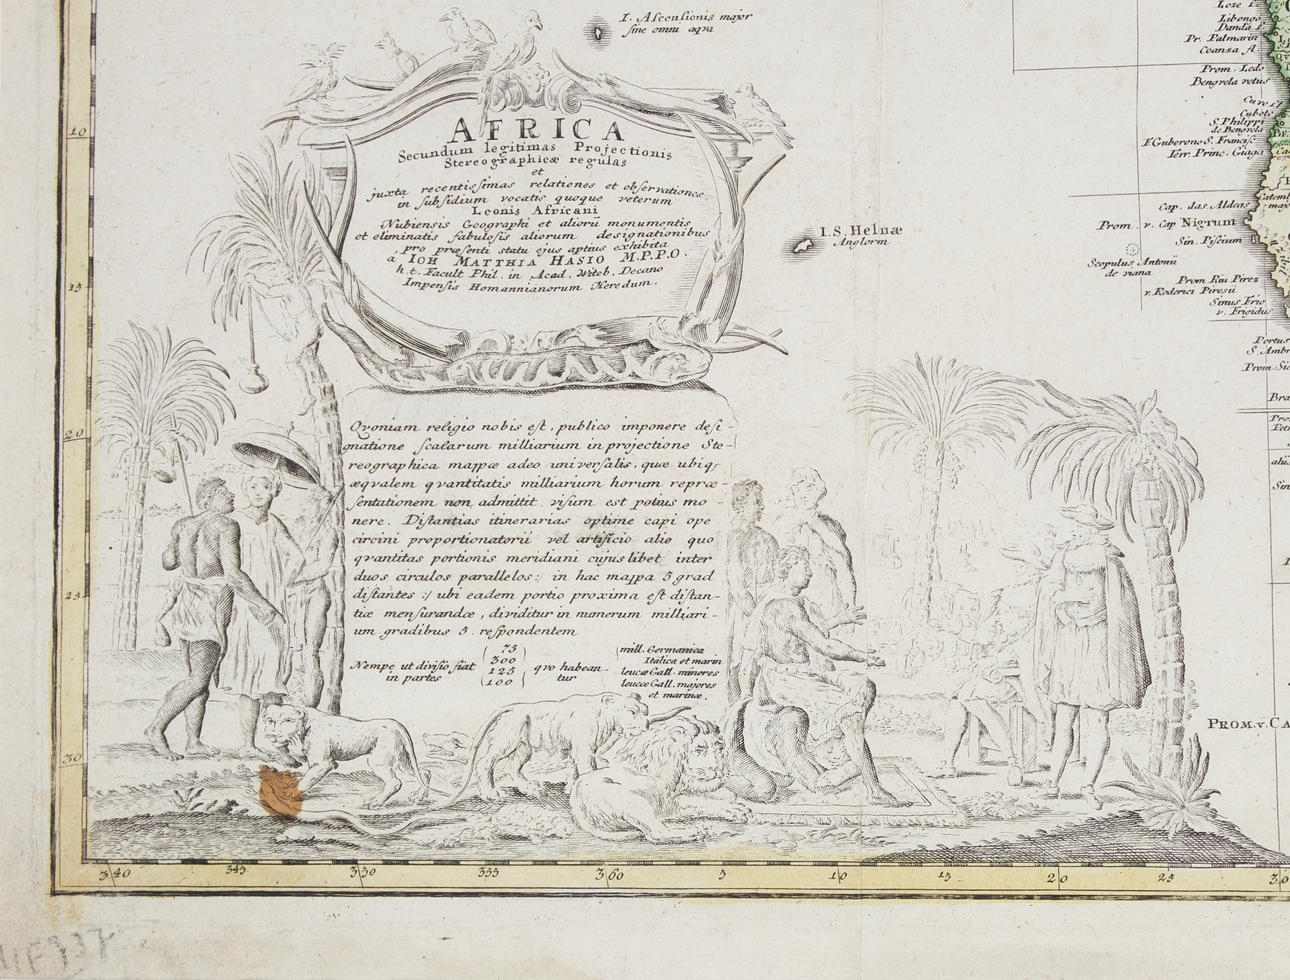 I. Ascensionis major
sine omni aqva
AFRICA
Secundum legitimas Projectionis
Stereographicæ regulas
et
juxta recentissimas relationes et observationes
in subsidium vocatis quoque veterum
Leonis Africani
Nubiensis Geographi et aliorũ monumentis
et eliminatis fabulosis aliorum designationibus
pro præsenti statu ejus aptius exhibita
a IOH MATTHIA HASIO M.P.P.O.
h.t. Facult Phil. in Acad. Witeb. Decano
Impensis Homannianorum Heredum.
I.S. Helnæ
Anglorm
Loze f.
Libongo
Danda f.
Pr. Palmarin
Coanza fl.
Prom. Ledo
Bengvela vetus
Cuvo fl
S. Philippi
de Bengvela
F. Guberono S. Francisc
Terr. Princ. Giaga
Cap. das Aldeas
Prom. v. Cap Nigrum
Sin. Piscium
Scopulus Antonii
de viana
Prom Riu Pirez
v. Roderici Piresii
Sinus Frio
v. Frigidus
Portus
S. Ambr
Prom. Sie
Bra
Sin
PROM. v. CA
Qvoniam religio nobis est, publico imponere desi-
gnatione scalarum milliarium in projectione Ste-
reographica mappæ adeo universalis, quæ ubiq,
æqvalem qvantitatis milliarium horum repræ-
sentationem non admittit, visum est potius mo
nere. Distantias itinerarias optime capi ope
circini proportionatorii vel artificio alio quo
qvantitas portionis meridiani cujuslibet inter
duos circulos parallelos: in hac mappa 5 grad
distantes :/ ubi eadem portio proxima est distan-
tiæ mensurandæ, dividitur in numerum milliari-
um gradibus 5. respondentem
Nempe ut divisio fiat in partes
75
300
125
100
qvo habean-
tur
mill. Germanica
Italica et marin
leucæ Gall. minores
leucæ Gall. majores
et marinæ.
10
15
20
25
30
340
345
350
355
360
5
10
15
20
25
30